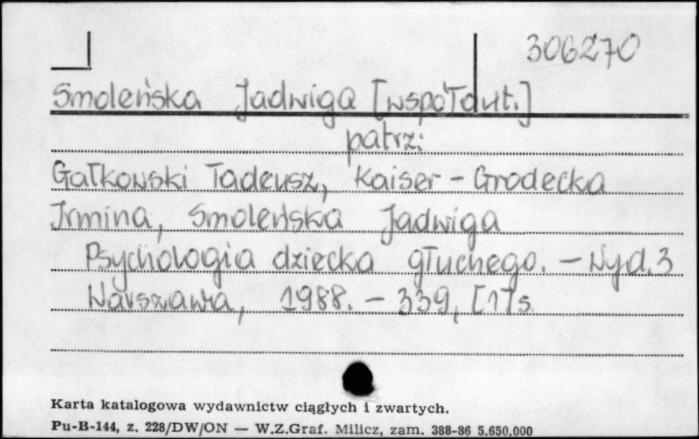 306270
Smoleńska Jadwiga [współaut.]
patrz:
Gałkowski Tadeusz, Kaiser - Grodecka
Irmina, Smoleńska Jadwiga
Psychologia dziecka głuchego. - Wyd. 3
Warszawa, 1988. - 339, [1] s.
Karta katalogowa wydawnictw ciągłych i zwartych.
Pu-B-144, z. 228/DW/ON — W.Z.Graf. Milicz, zam. 388-86 5.650.000